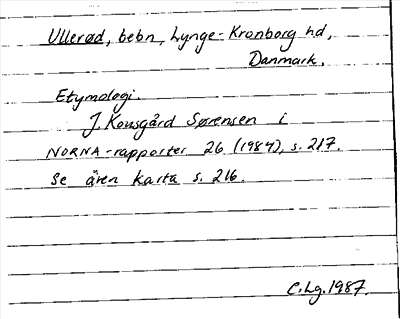 Ullerød, bebn, Lynge-Kronborg hd,
Danmark.
Etymologi
J. Kousgård Sørensen i
NORNA-rapporter 26 (1984), s. 217.
Se även karta s. 216.
C.Lg. 1987.